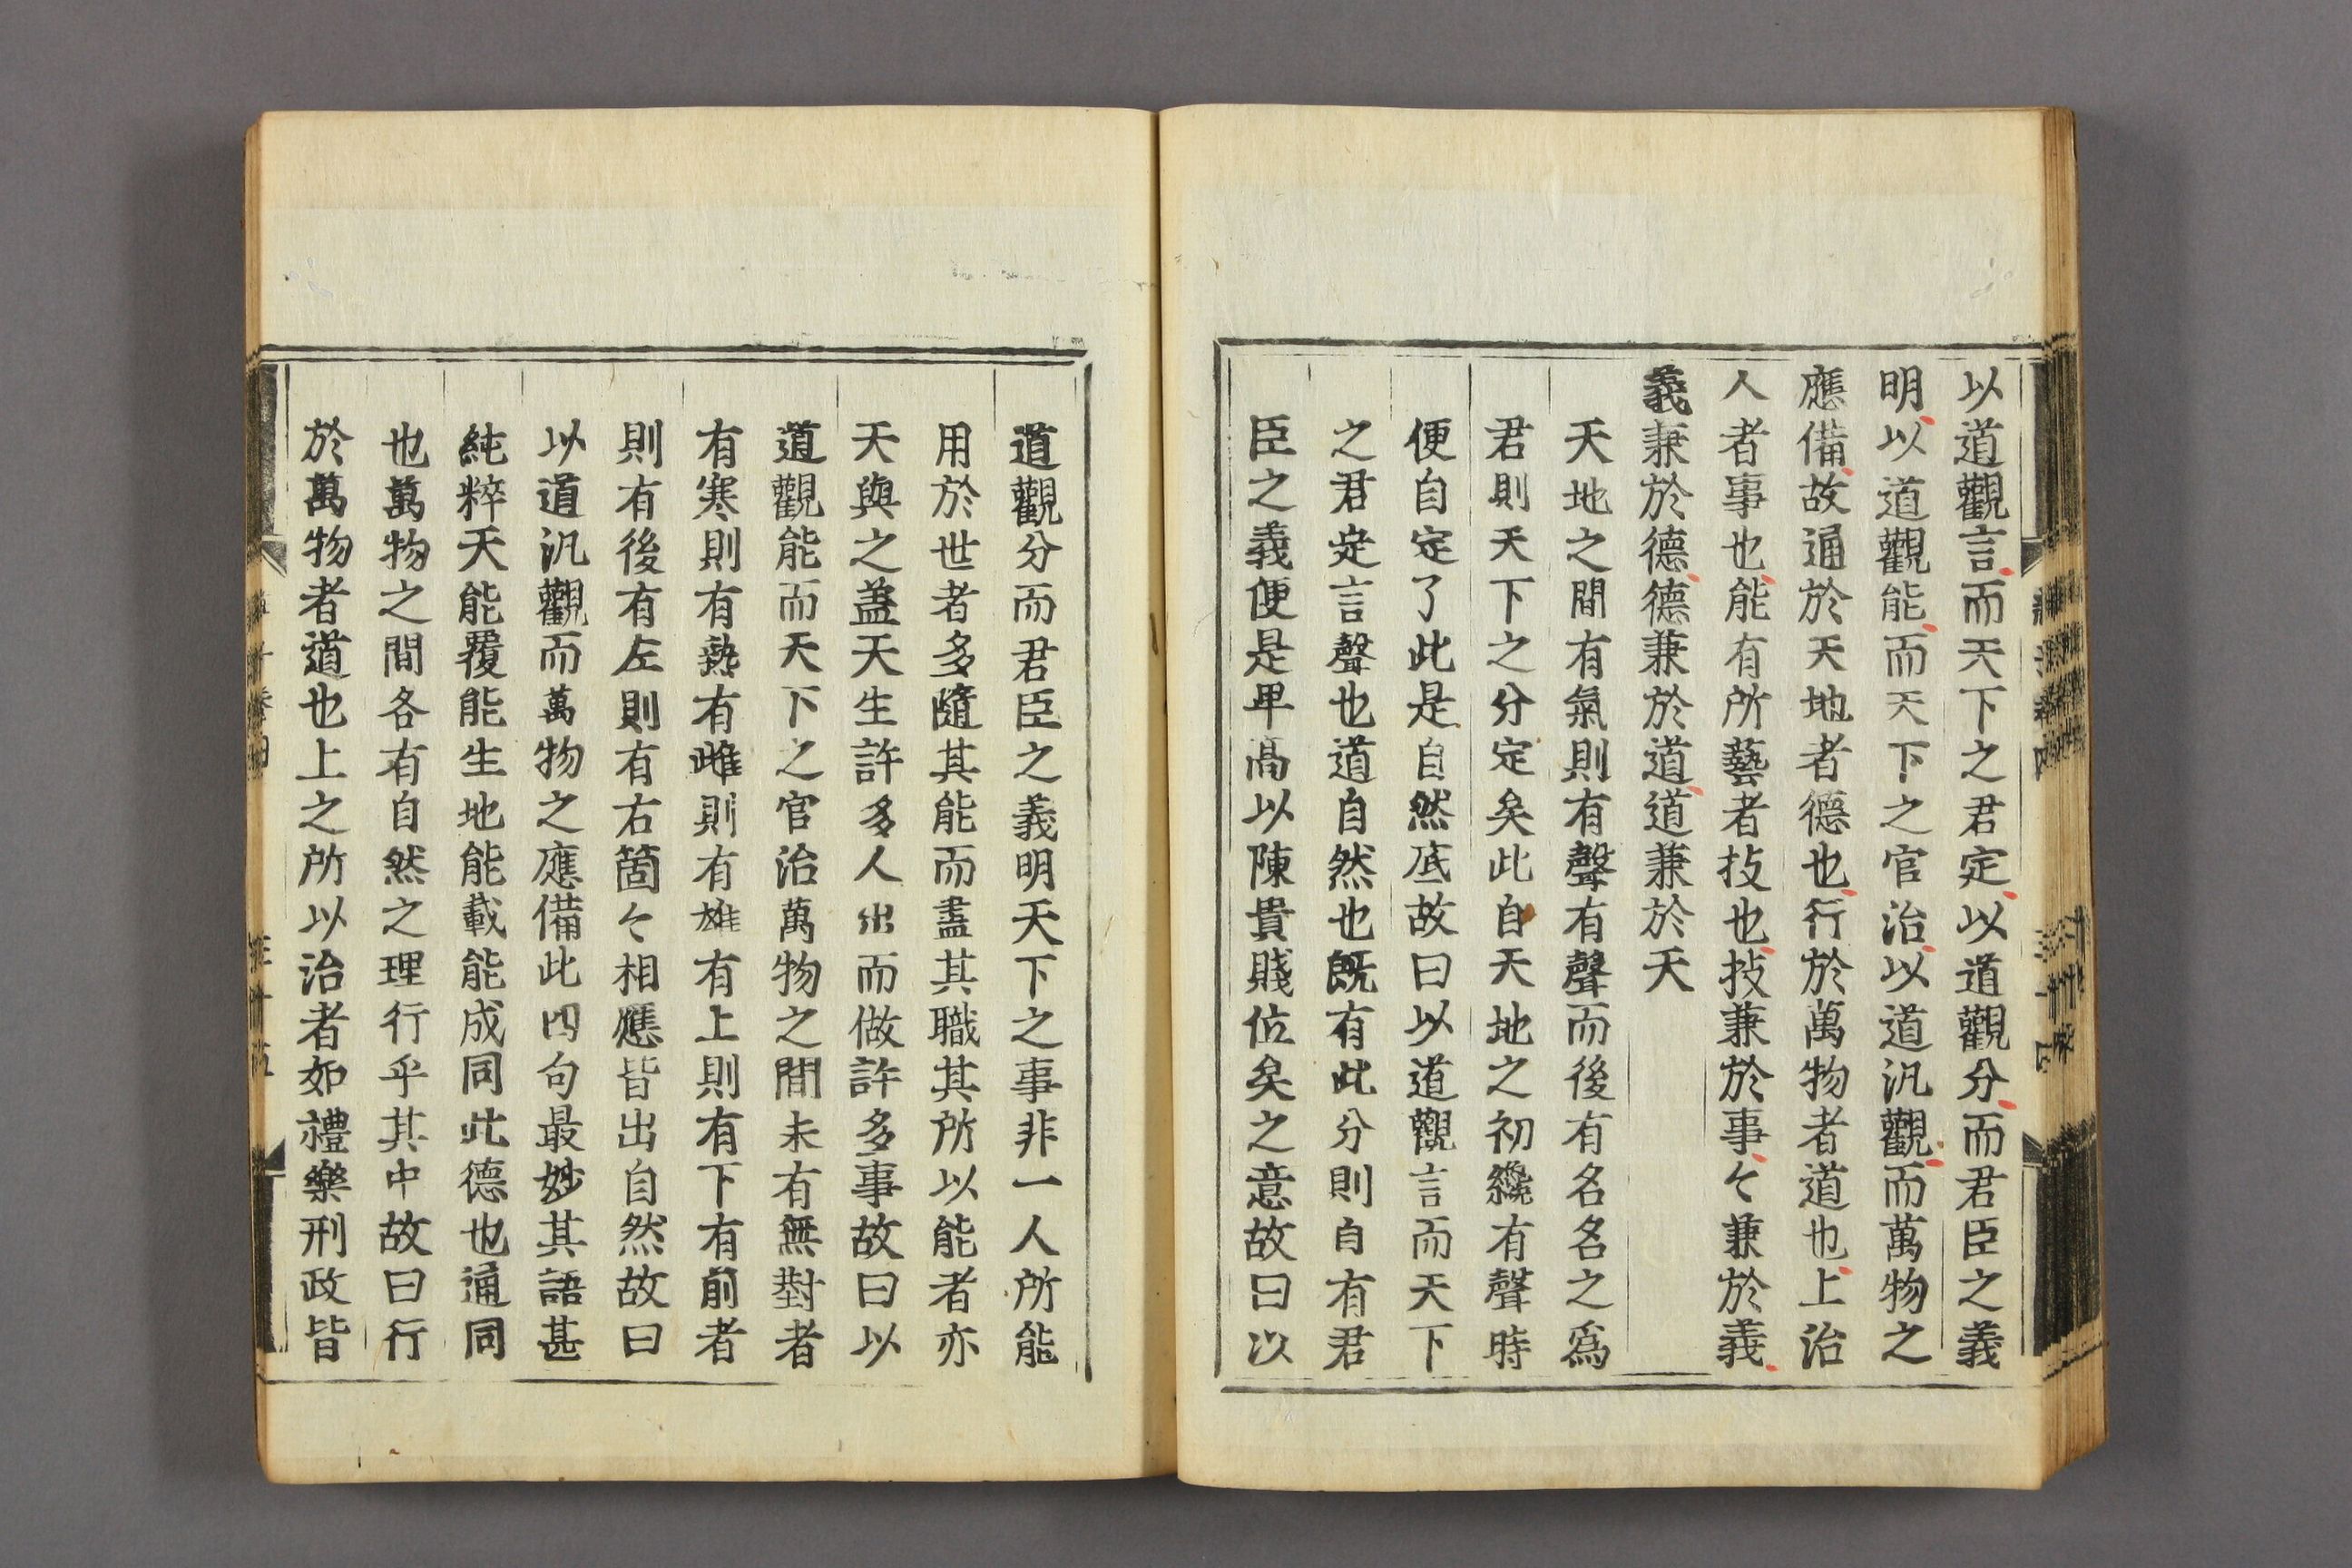 以道觀言而天下之君定以道觀分而君臣之義
明以道觀能而天下之官治以道汎觀而萬物之
應備故通於天地者德也行於萬物者道也上治
人者事也能有所藝者技也技兼於事々兼於義
義兼於德德兼於道道兼於天
天地之間有氣則有聲有聲而後有名名之爲
君則天下之分定矣此自天地之初纔有聲時
便自定了此是自然底故曰以道觀言而天下
之君定言聲也道自然也旣有此分則自有君
臣之義便是卑高以陳貴賤位矣之意故曰以
道觀分而君臣之義明天下之事非一人所能
用於世者多隨其能而盡其職其所以能者亦
天與之蓋天生許多人出而做許多事故曰以
道觀能而天下之官治萬物之間未有無對者
有寒則有熱有雌則有雄有上則有下有前者
則有後有左則有右箇々相應皆出自然故曰
以道汎觀而萬物之應備此四句最妙其語甚
純粹天能覆能生地能載能成同此德也通同
也萬物之間各有自然之理行乎其中故曰行
於萬物者道也上之所以治者如禮樂刑政皆